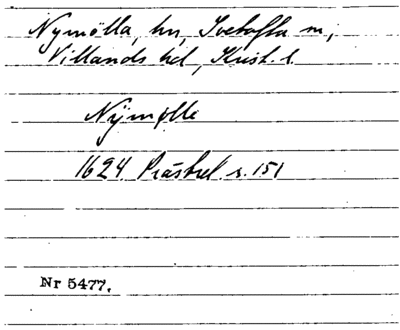 Nymölla, hn, Ivetofta sn,
Villands hd, Krist. l.
Nÿmølle
1624 Prästrel. s. 151
Nr 5477.